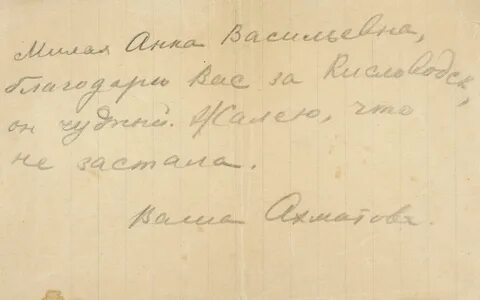 Милая Анна Васильевна,
благодарю Вас за Кисловодск,
он чудный. Жалею, что
не застала.
Ваша Ахматова.